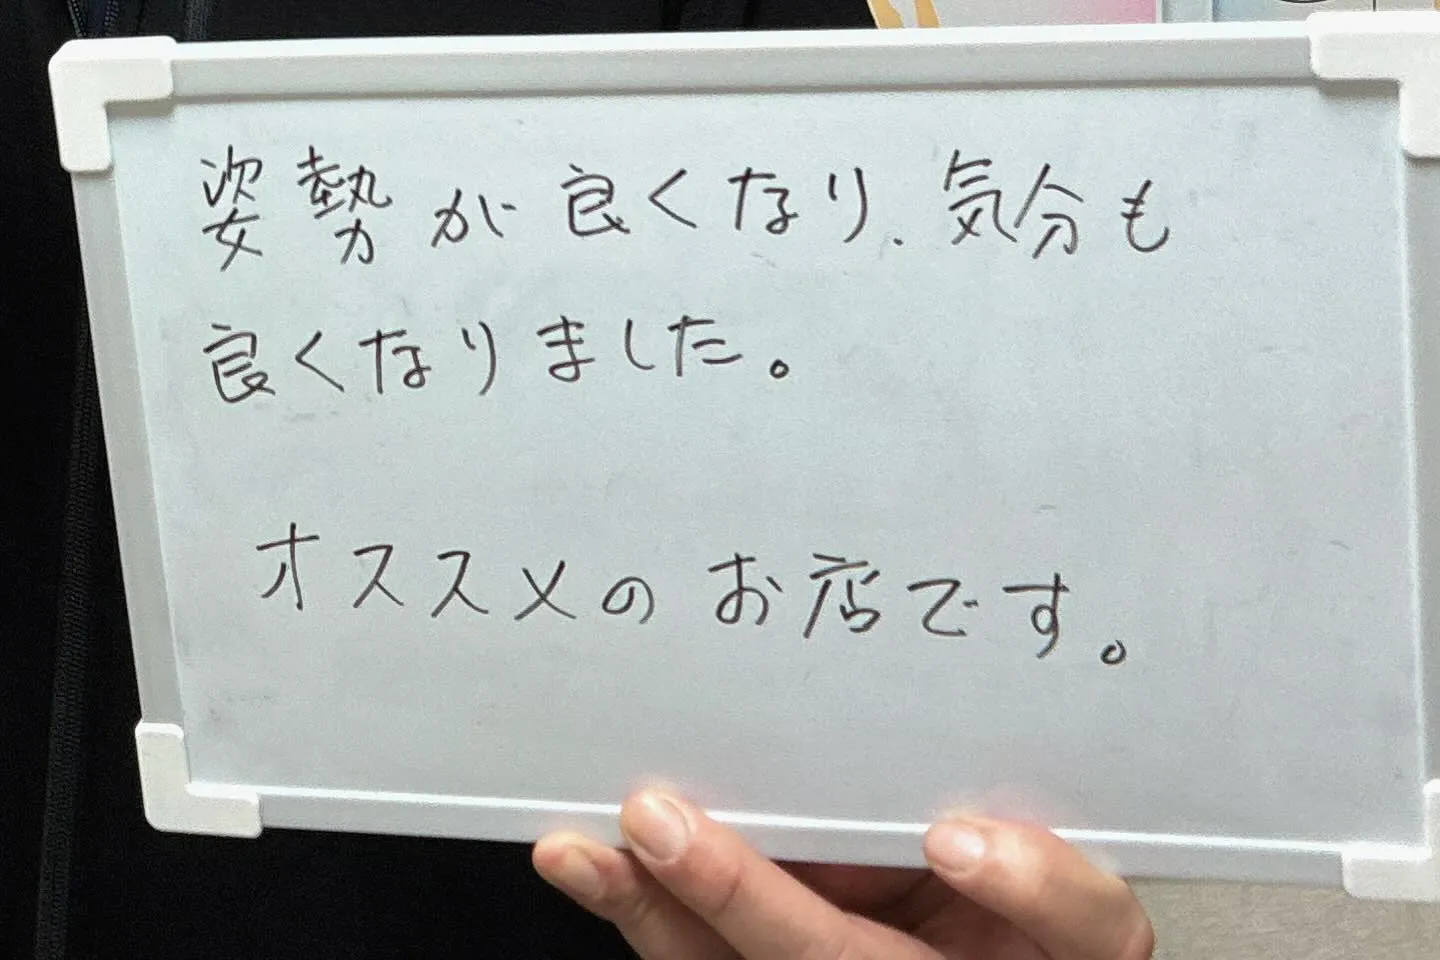 姿勢が良くなり、気分も
良くなりました。
オススメのお店です。